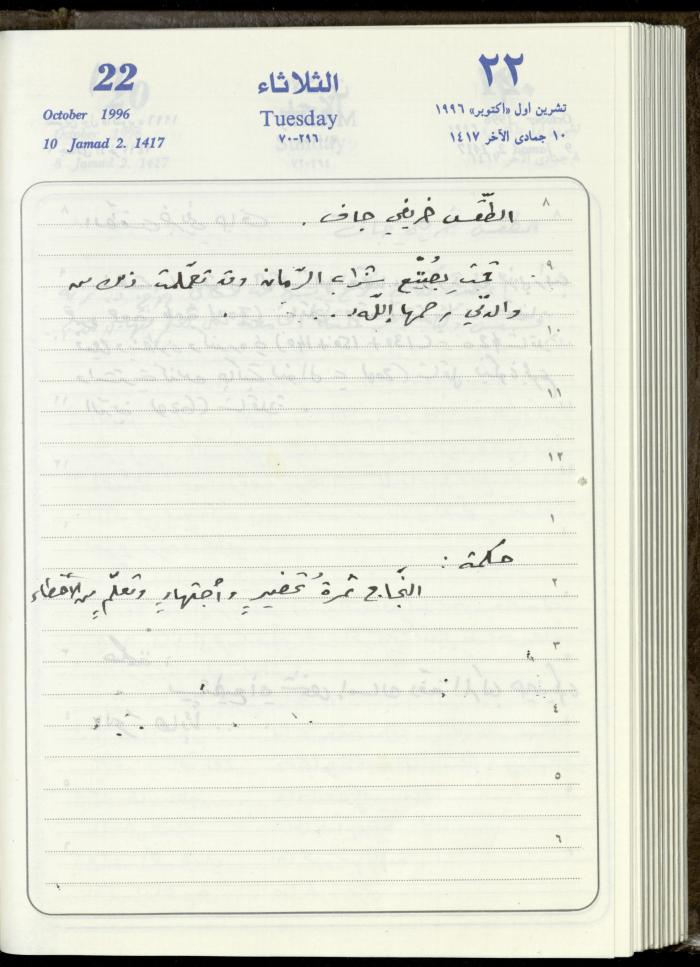 22
October 1996
10 Jamad 2. 1417
الثلاثاء
Tuesday
٢٩٦-٧٠
٢٢
تشرين اول «اكتوبر» ١٩٩٦
١٠ جمادى الآخر ١٤١٧
٨
الطّقس خريفي جاف .
٩
قمت بصُنع شراب الرّمان وقد تعلّمت ذلك من
والدتي رحمها اللّه .
١٠
١١
١٢
١
حكمة :
٢
النّجاح ثمرةُ تحضيرٍ وأجتهادٍ وتعلّمٍ من الأخطاء
٣
٤
٥
٦